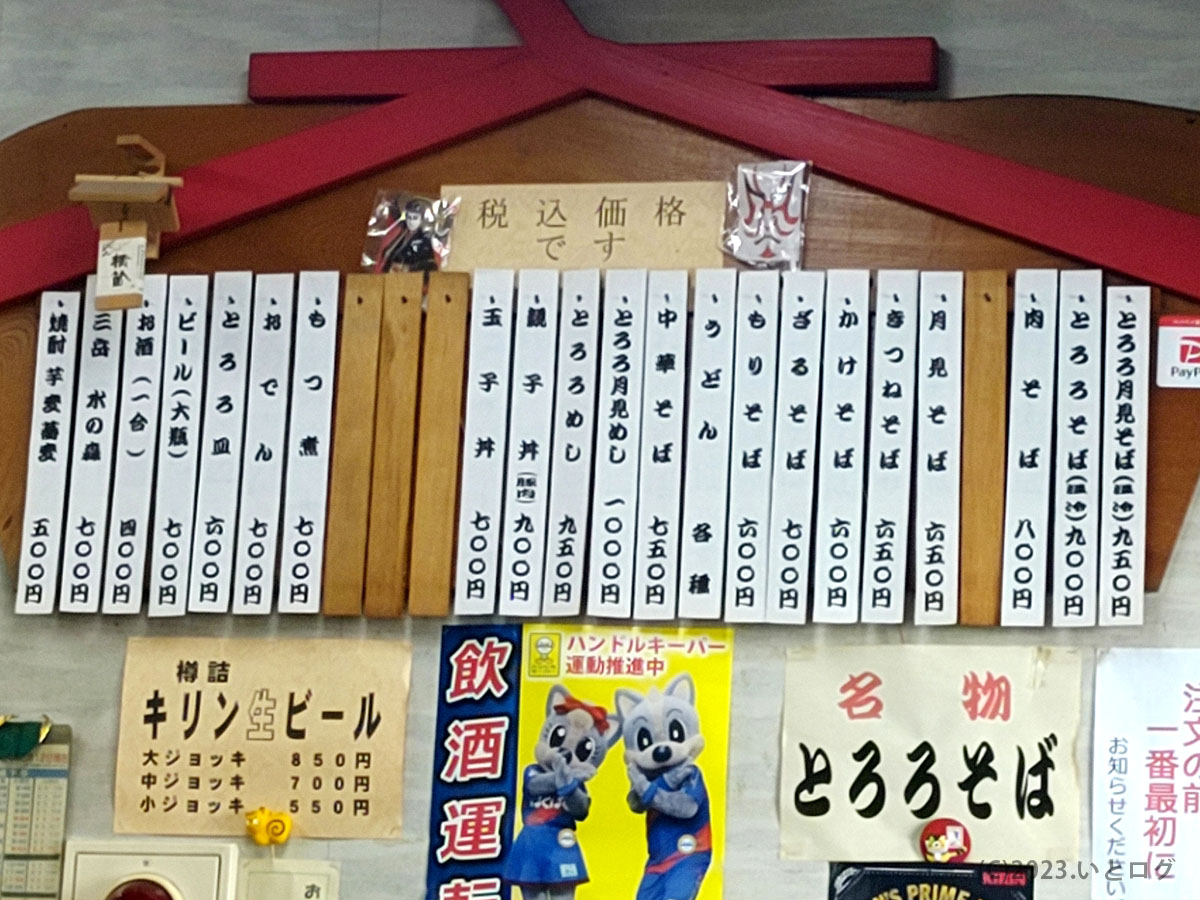 税込価格
です
とろろ月見そば(温冷)九五〇円
とろろそば(温冷)九〇〇円
肉そば 八〇〇円
月見そば 六五〇円
きつねそば 六五〇円
かけそば 六〇〇円
ざるそば 七〇〇円
もりそば 六〇〇円
うどん 各種
中華そば 七五〇円
とろろ月見めし 一〇〇〇円
とろろめし 九五〇円
親子丼(豚肉)九〇〇円
玉子丼 七〇〇円
もつ煮 七〇〇円
おでん 七〇〇円
とろろ皿 六〇〇円
ビール(大瓶) 七〇〇円
お酒(一合) 四〇〇円
三岳 水の森 七〇〇円
焼酎 芋麦蕎麦 五〇〇円
PayP
樽詰
キリン生ビール
大ジョッキ 850円
中ジョッキ 700円
小ジョッキ 550円
飲酒運転
ハンドルキーパー
運動推進中
名物
とろろそば
注文の前
一番最初に
お知らせください
お
'S PRIME
KIRIN
(C)2023.いとログ